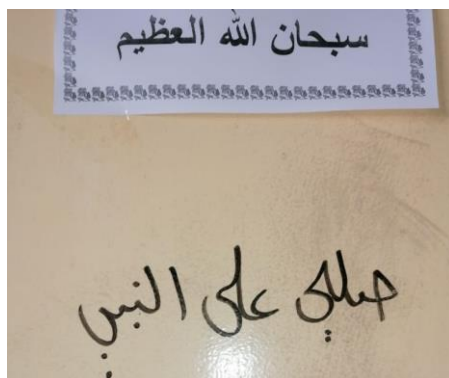 سبحان الله العظيم
صللي على النبي